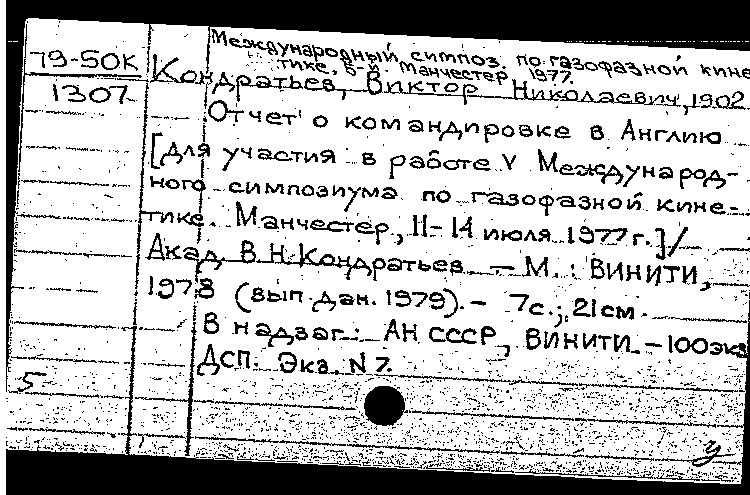 Международный симпоз. по газофазной кине
тике, 5-й. Манчестер, 1977.
79-50К
1307
Кондратьев, Виктор Николаевич, 1902
Отчет о командировке в Англию
[для участия в работе V Международ-
ного симпозиума по газофазной кине-
тике. Манчестер, 11-14 июля 1977 г.]/
Акад. В.Н. Кондратьев. — М.: ВИНИТИ,
1978 (вып. дан. 1979). - 7с.; 21см.
В надзаг.: АН СССР, ВИНИТИ. - 100экз
ДСП. Экз. N 7.
5
у